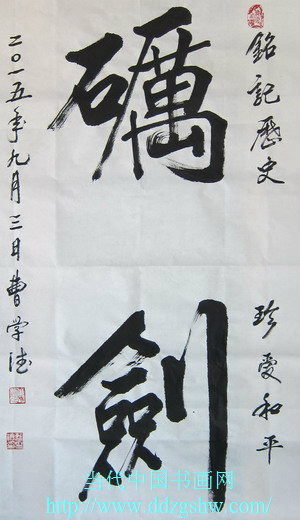 銘記歷史 珍愛和平
礪
劍
二〇一五年九月三日曹学
当代中国书画网
http://www.ddzgshw.com/